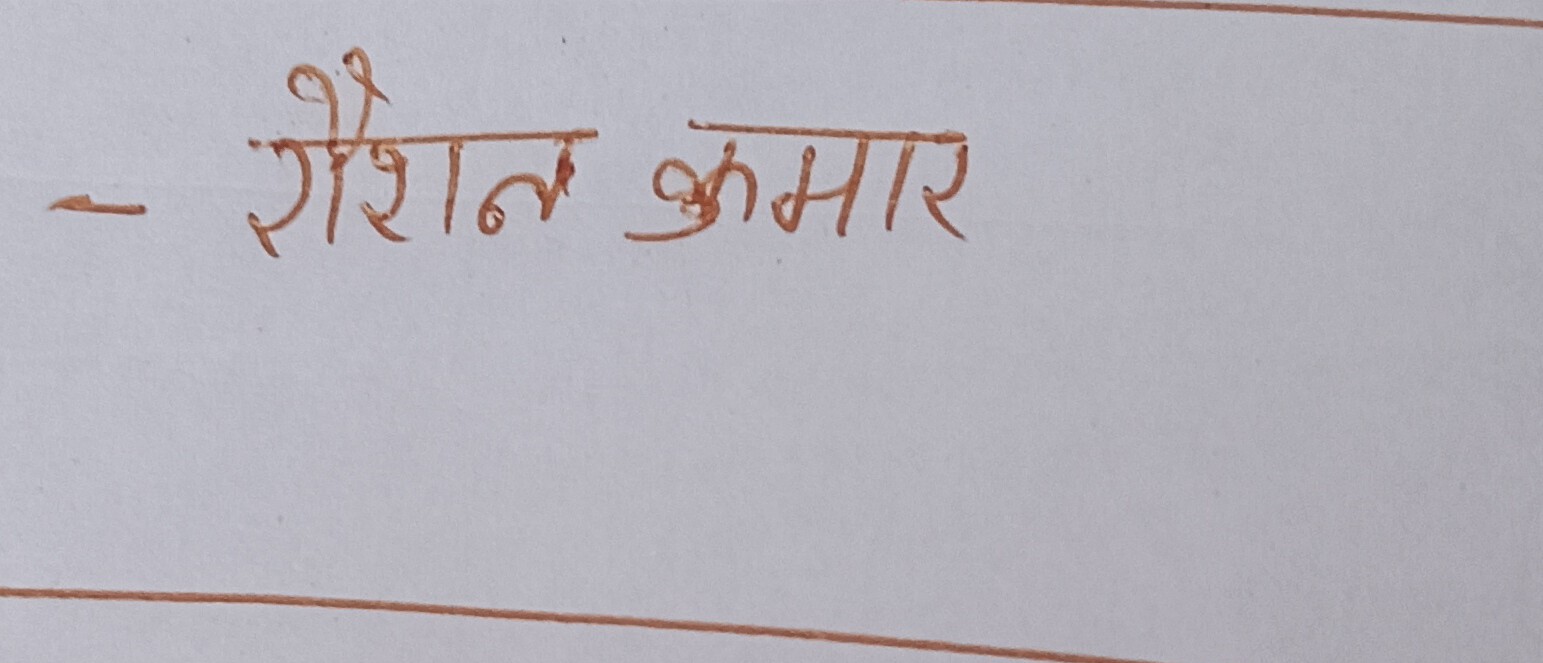 - रौशन कुमार